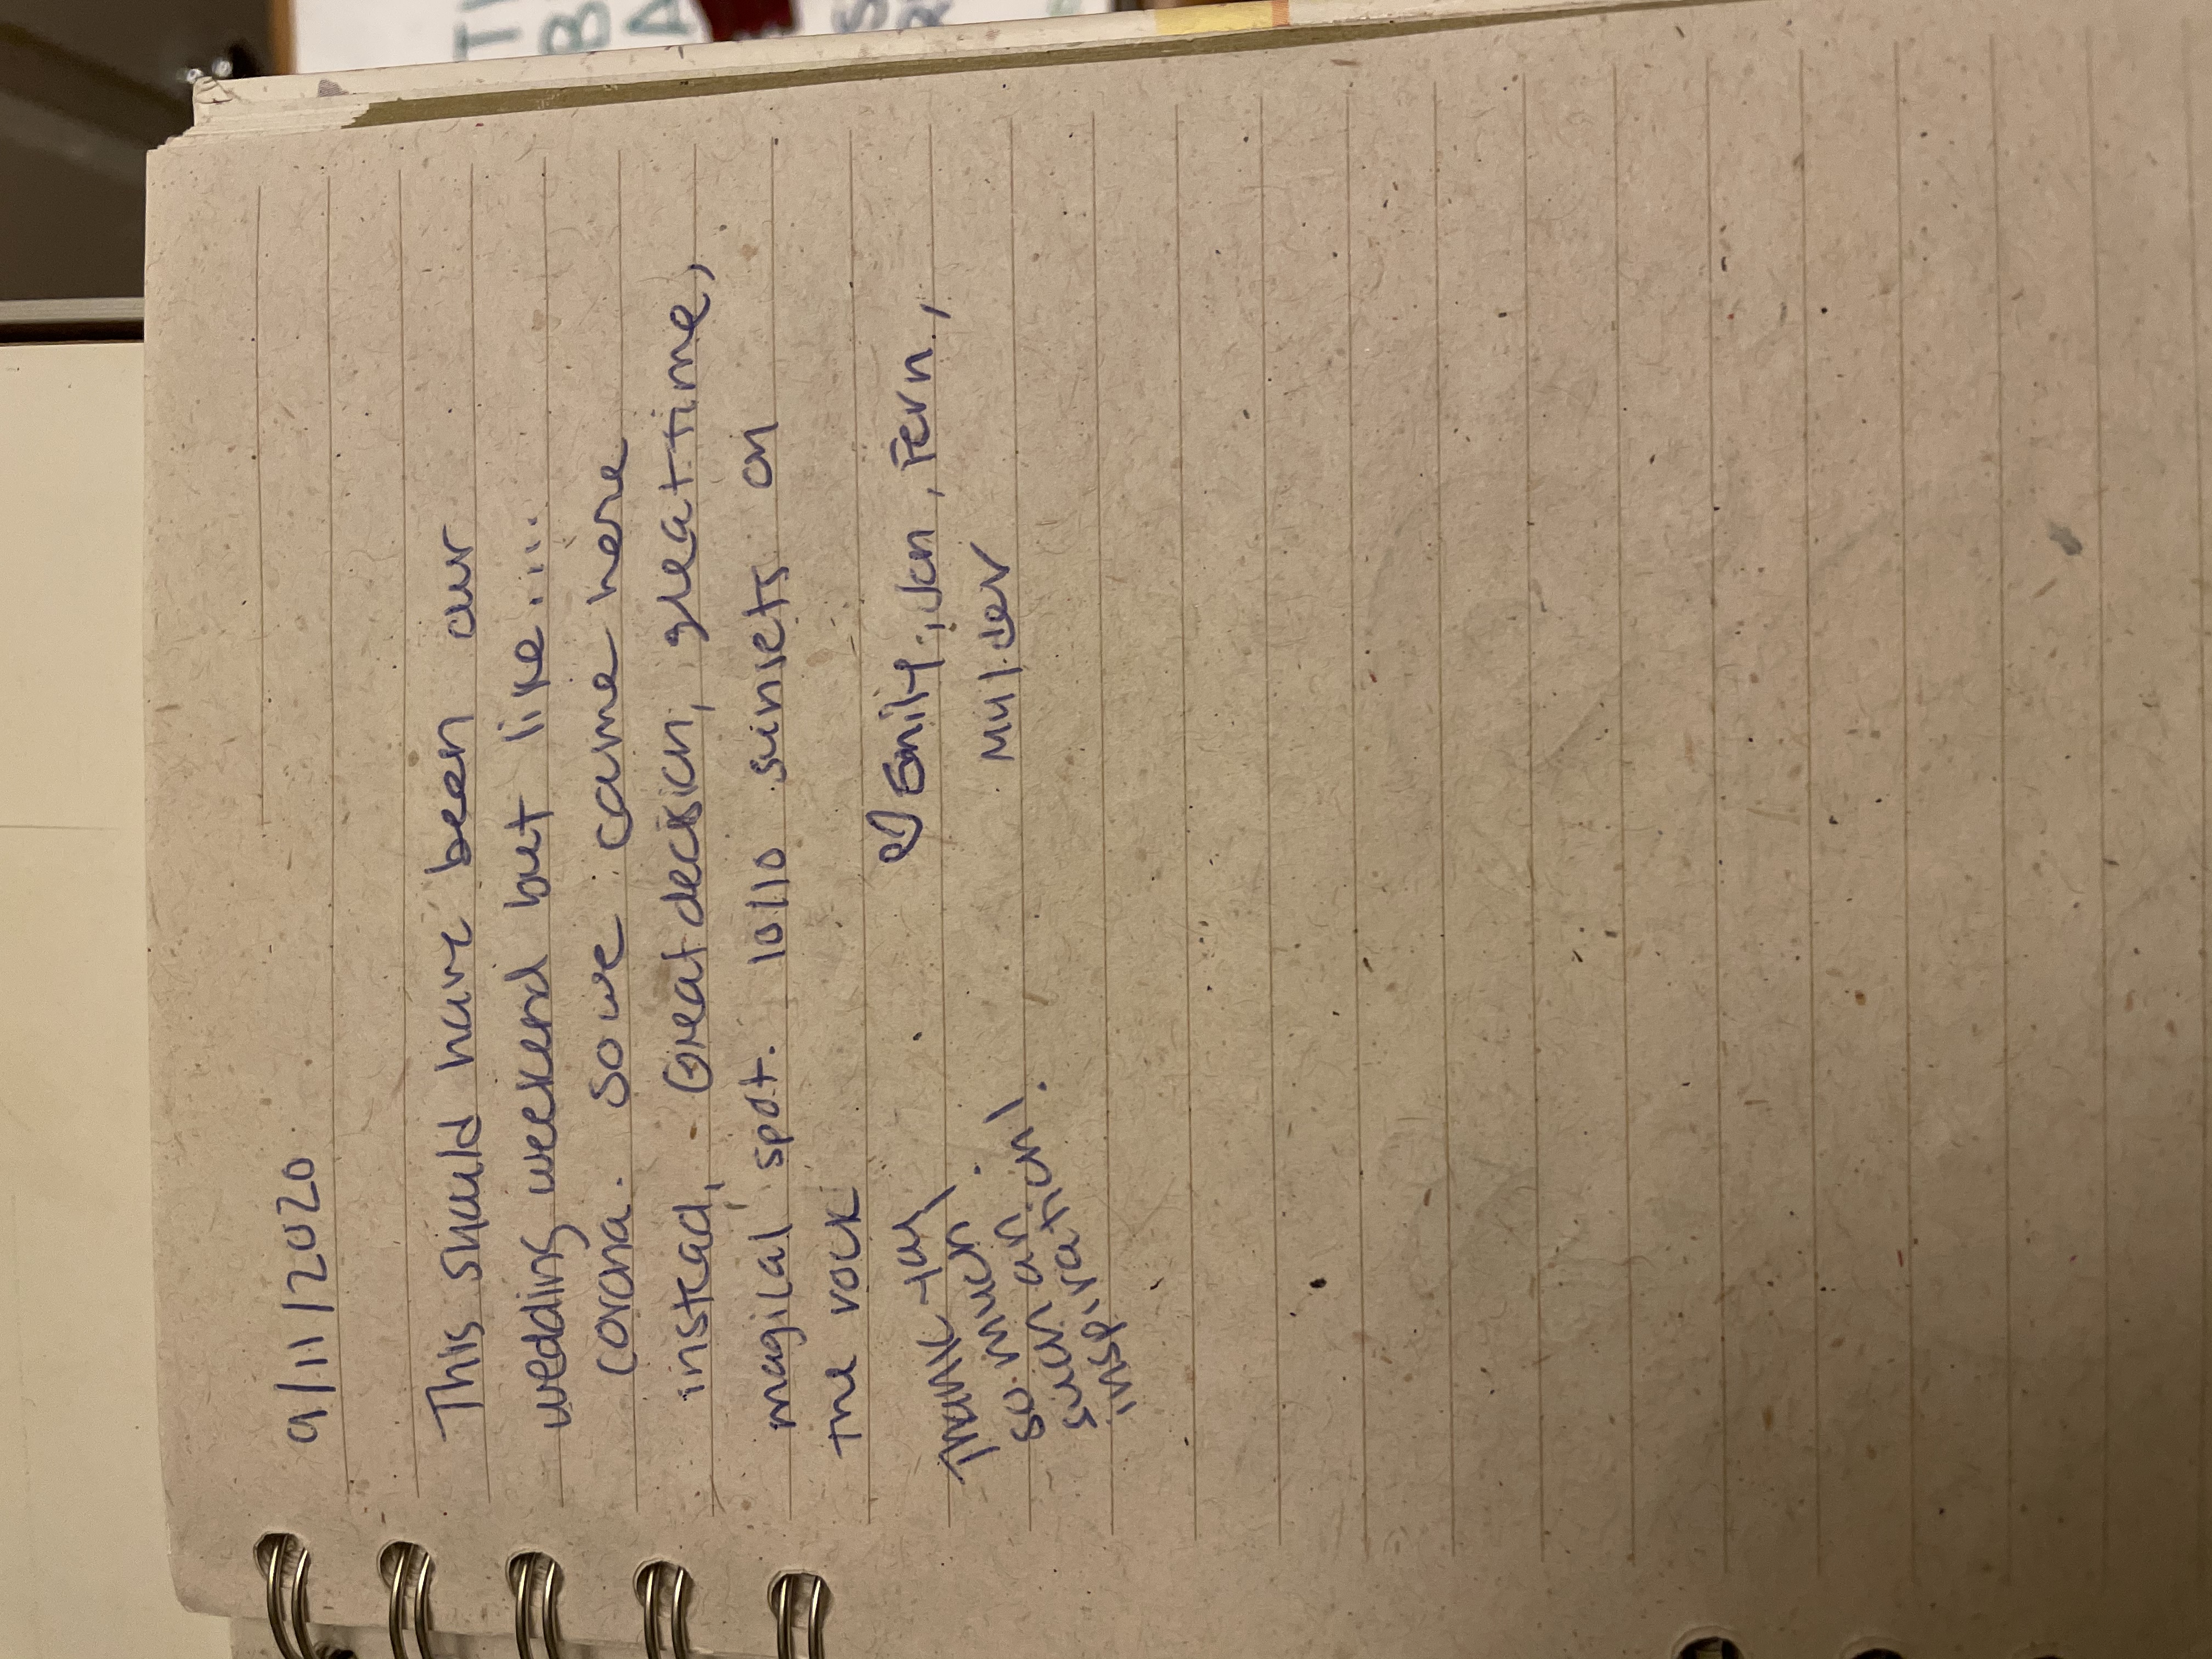 9/11/2020
This should have been our
wedding weekend but like....
corona. So we came here
instead. Great decision, great time,
magical spot. 10/10 sunsets on
the rock
♡ Emily, Jen, Fern,
Mulder
Thank you
so much!
such an
inspiration!